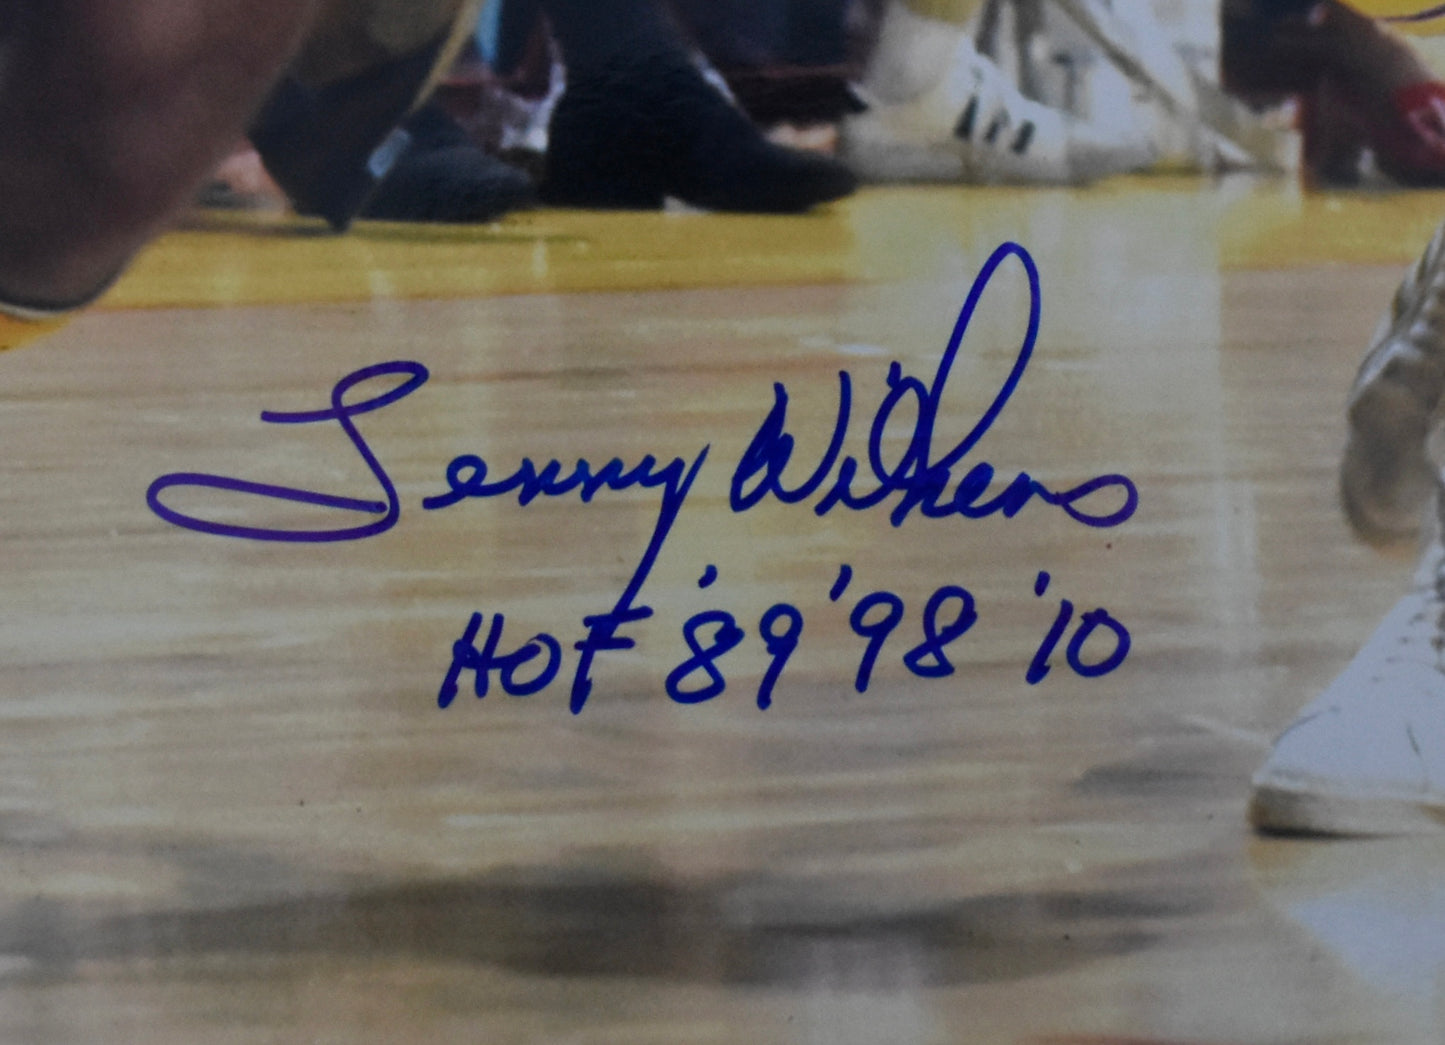 Lenny Wilkens
HOF '89 '98 '10